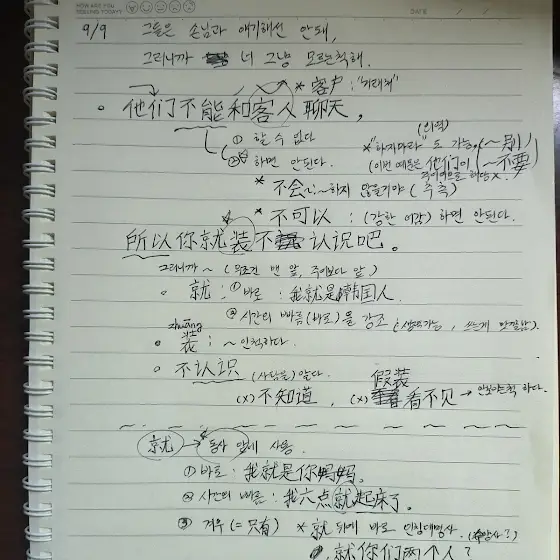 HOW ARE YOU FEELING TODAY?
DATE
9/9 그들은 손님과 얘기해선 안돼,
그러니까 너 그냥 모르는척해.
* 客户 : "거래처"
• 他们不能和客人聊天,
① 할 수 없다
(의역)
* "하지마라" 도 가능, (~别
② 하면 안된다.
(이번 예문은 他们이 ~不要)
* 不会 : ~하지 않을거야 (추측)
* 不可以 : (강한 어감) 하면 안된다.
所以你就装不认识吧。
그러니까 ~ (무조건 맨 앞, 주어보다 앞)
• 就 : ① 바로 : 我就是韩国人.
② 시간의 빠름(바로)을 강조
zhuāng
• 装 : ~인척하다.
• 不认识 (사람을) 알다.
假装
(x) 不知道, (x) 看不见 →
就 → 동사 앞에 사용.
① 바로 : 我就是你妈妈。
② 시간의 빠름 : 我六点就起床了。
③ 겨우 (= 只有) * 就 뒤에 바로 인칭대명사.
就你们两个人?